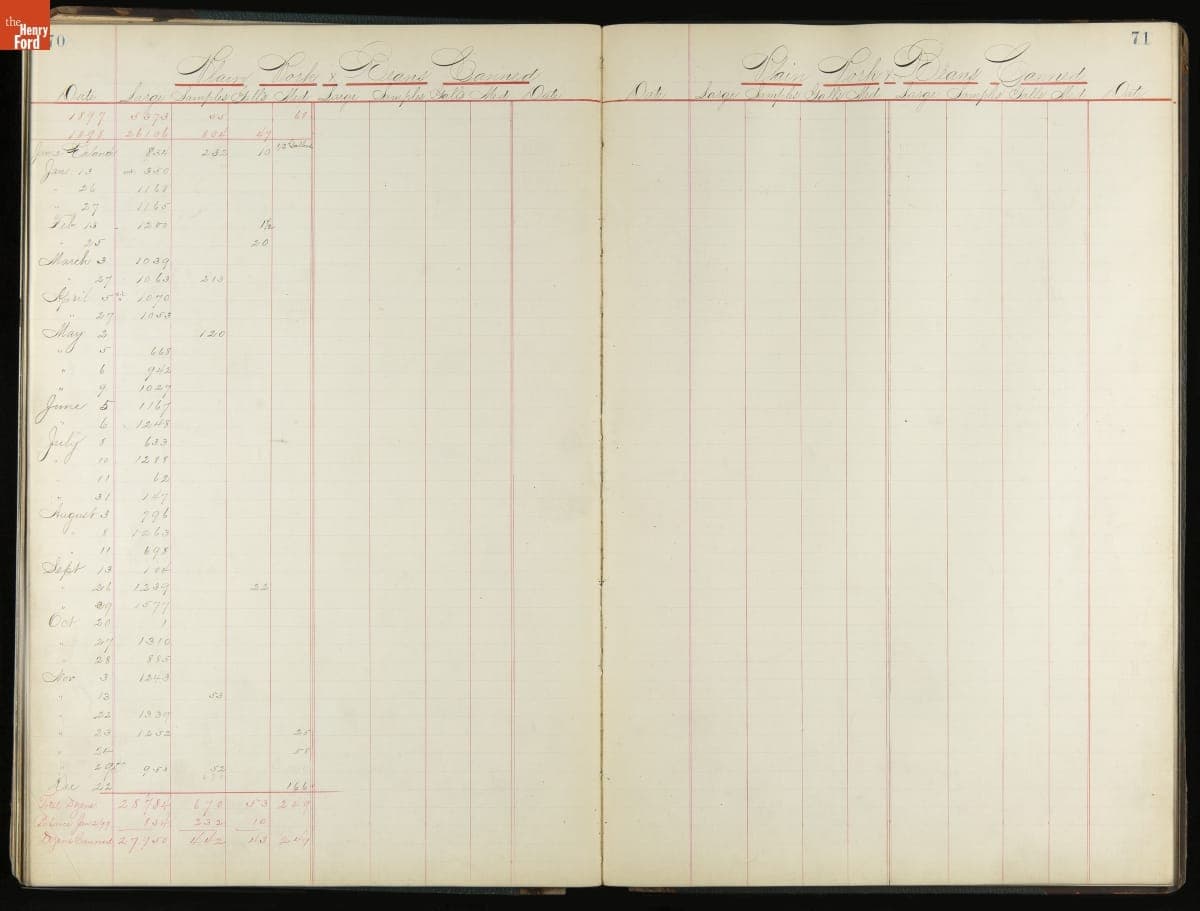 the Henry Ford
70
Plain Pork & Beans Canned
Date Large Samples Galls Med Large Samples Galls Med Date
1897 5373 55 60
1898 26106 47
Jan 2 Balance 834 232 10 1/2 Gallons
Jan 13 350
" 26 1168
" 27 1165
Feb 13 1200
" 25 20
March 3 1039
" 27 1063 213
April 5 1070
" 27 1053
May 2 120
" 5 668
" 6 942
" 9 1027
June 5 1167
" 6 1248
July 8 633
" 10 1288
" 11 62
" 31 147
August 3 796
" 8 1263
" 11 698
Sept 13 104
" 26 1239 22
" 29 1577
Oct 20 1
" 27 1310
" 28 885
Nov 3 1243
" 13 53
" 22 1330
" 23 1252 25
" 24 58
" 29 953 52
Dec 22 166
Total Dozens 28784 670 53 249
Balance Jan 2/99 834 232 10
Dozens Canned 27950 442 43 249
71
Plain Pork & Beans Canned
Date Large Samples Galls Med Large Samples Galls Med Date